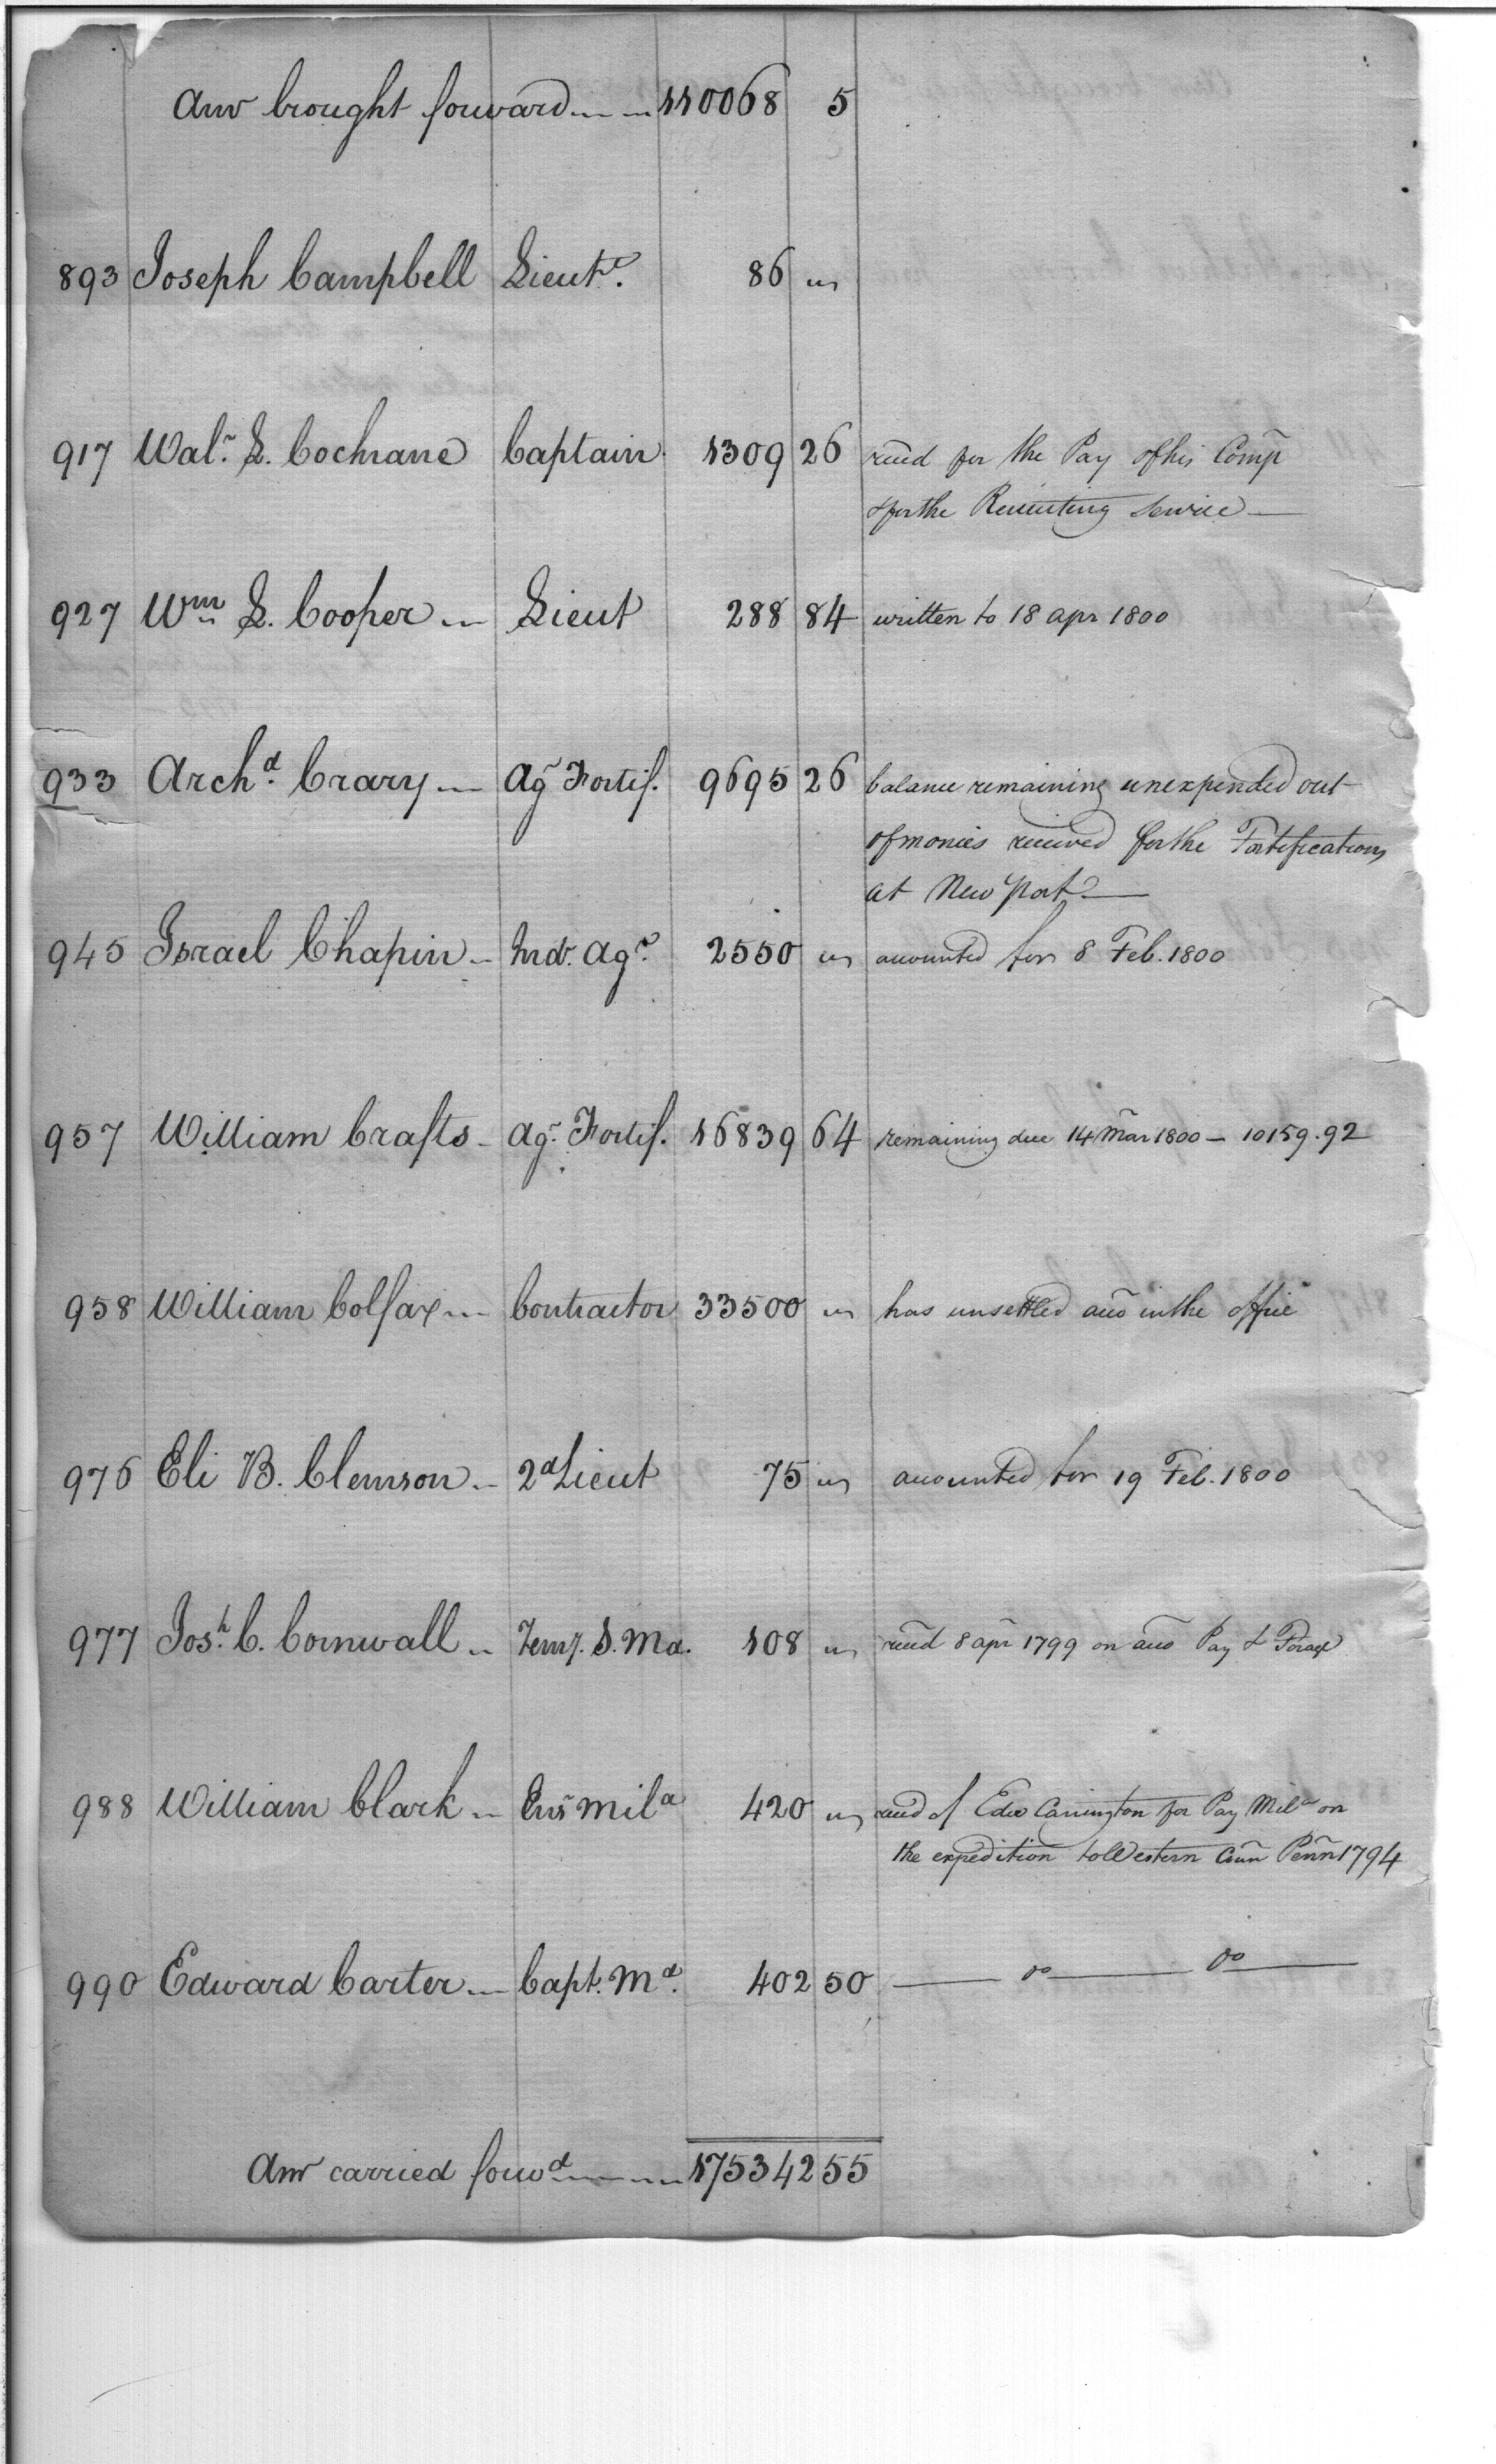 Amt brought forward 110068 5
893 Joseph Campbell Lieut. 86 "
917 Walr. L. Cochrane Captain 1309 26 recd for the Pay of his Comp
& for the Recruiting Service
927 Wm L. Cooper Lieut 288 84 written to 18 apr 1800
933 Archd. Crary Ag Fortif. 9695 26 balance remaining unexpended out
of monies received for the Fortifications
at New port
945 Israel Chapin Ind. Agt. 2550 " accounted for 8 Feb. 1800
957 William Crafts Ag. Fortif. 16839 64 remaining due 14 Mar 1800 — 10159.92
958 William Colfax Contractor 33500 " has unsettled acco in the office
976 Eli B. Clemson 2d Lieut 75 " accounted for 19 Feb. 1800
977 Josh. C. Cornwall Temy. S. Ma. 108 " recd 8 apr 1799 on acco Pay & Forage
988 William Clark Ens Mila 420 " recd of Edwd Carrington for Pay Mila on
the expedition to Western Coun Penn 1794
990 Edward Carter Capt. Md. 402 50 — do — do —
Amt carried forwd 175342 55